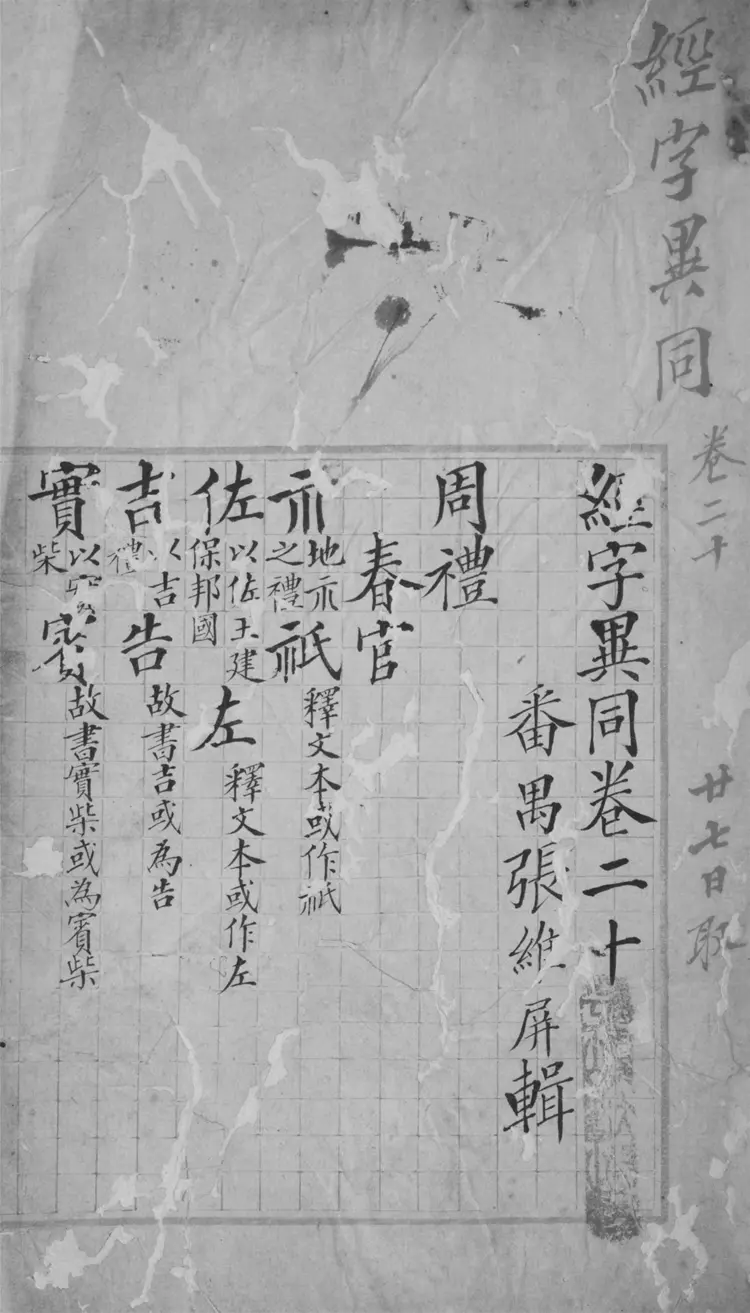 經字異同 卷二十
廿七日取
經字異同卷二十
番禺張維屏輯
周禮
春官
示 地示之禮 祇 釋文本或作祇
佐 以佐王建保邦國 左 釋文本或作左
吉 以吉禮 告 故書吉或為告
實 以實柴 賓 故書實柴或為賓柴